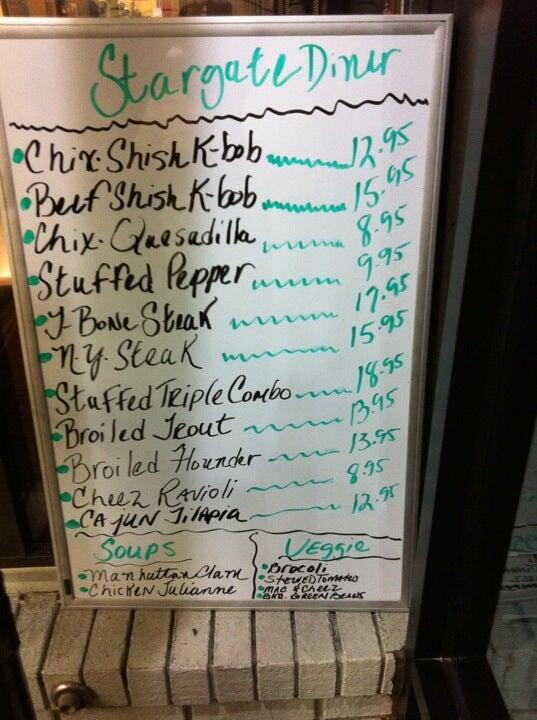 Stargate Diner
Chix. Shish K-bob 12.95
Beef Shish K-bob 15.95
Chix. Quesadilla 8.95
Stuffed Pepper 9.95
T-Bone Steak 17.95
N.Y. Steak 15.95
Stuffed Triple Combo 18.95
Broiled Trout 13.95
Broiled Flounder 13.95
Cheez Ravioli 8.95
Cajun Tilapia 12.95
Soups
Manhattan Clam
Chicken Julianne
Veggie
Brocoli
Stewed Tomatos
Mac & Cheez
Green Beans